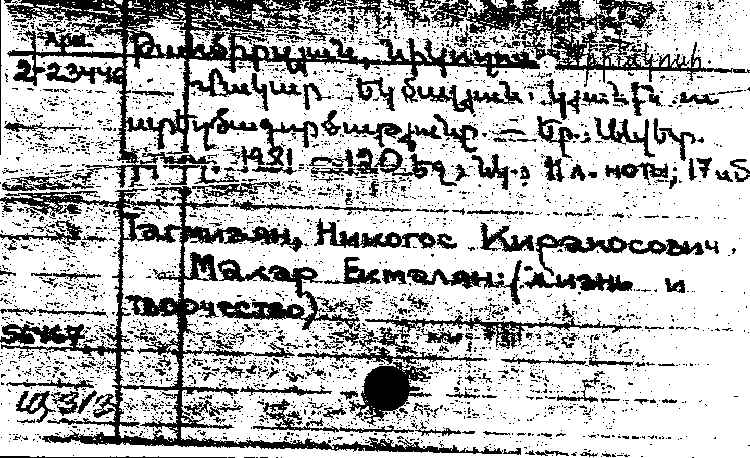 Арм.
2-23446
Թահմիզյան, Նիկողոս Կիրակոսի.
Մակար Եկմալյան. կյանքն ու
ստեղծագործությունը. — Եր.: Սովետ.
գրող. 1981 — 120 եջ, նկ., 11 л. ноты; 17 սմ
Тагмизян, Никогос Киракосович.
Макар Екмалян: (жизнь и
творчество)
56467